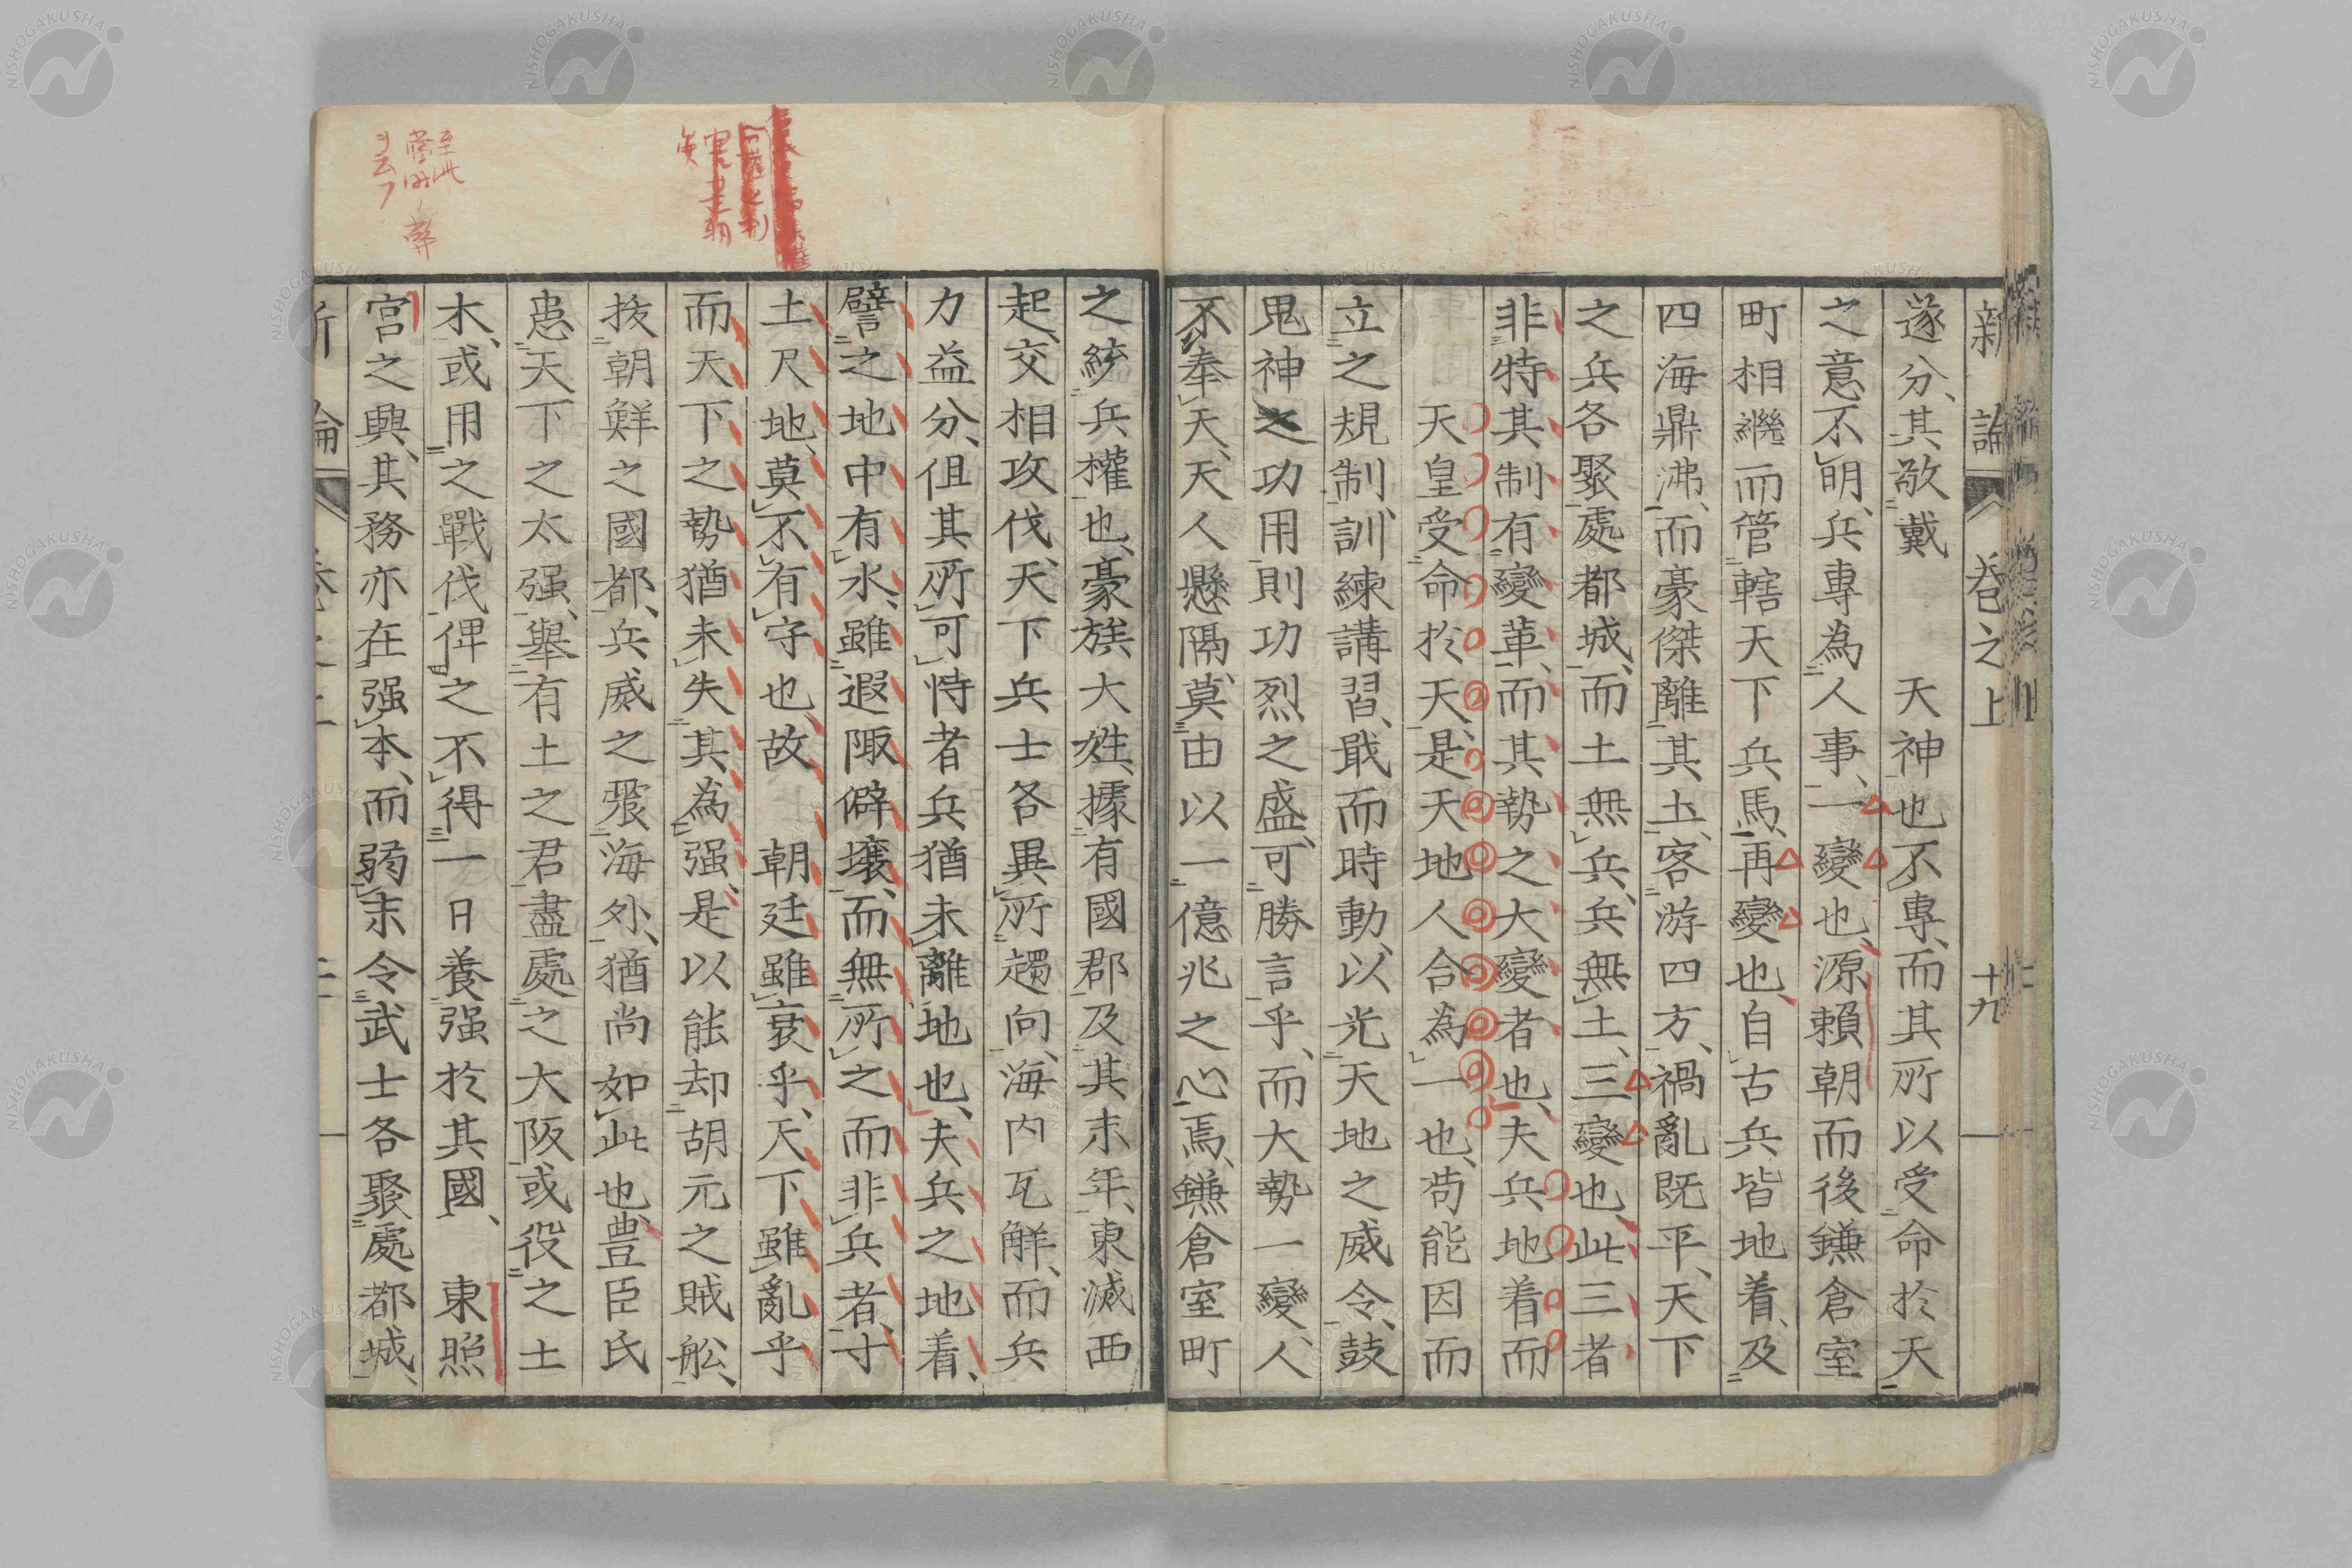 新論 卷之上 十九
遂分、其敬戴 天神也不專、而其所以受命於天
之意不明、兵專為人事、一變也、源賴朝而後鎌倉室
町相繼而管轄天下兵馬、再變也、自古兵皆地着、及
四海鼎沸、而豪傑離其土、客游四方、禍亂既平、天下
之兵各聚處都城、而土無兵、兵無土、三變也、此三者
非特其制有變革、而其勢之大變者也、夫兵地着而
天皇受命於天、是天地人合為一也、苟能因而
立之規制、訓練講習、戢而時動、以光天地之威令、鼓
鬼神之功用則功烈之盛、可勝言乎、而大勢一變、人
不奉天、天人懸隔、莫由以一億兆之心焉、鎌倉室町
之統兵權也、豪族大姓、據有國郡、及其末年、東滅西
起、交相攻伐、天下兵士各異所趨向、海内瓦解、而兵
力益分、但其所可恃者兵猶未離地也、夫兵之地着、
譬之地中有水、雖遐陬僻壤、而無所之而非兵者、寸
土尺地、莫不有守也、故 朝廷雖衰乎、天下雖亂乎
而天下之勢猶未失其為强、是以能却胡元之賊舩、
拔朝鮮之國都、兵威之震海外、猶尚如此也、豊臣氏
患天下之太强、舉有土之君盡處之大阪、或役之土
木、或用之戰伐、俾之不得一日養强於其國、 東照
宮之興、其務亦在强本、而弱末、令武士各聚處都城、
新論